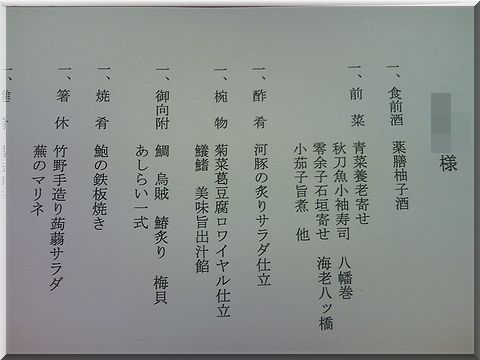 様
一、食前酒 薬膳柚子酒
一、前菜 青菜養老寄せ
秋刀魚小袖寿司 八幡巻
零余子石垣寄せ 海老八ッ橋
小茄子旨煮 他
一、酢肴 河豚の炙りサラダ仕立
一、椀物 菊菜葛豆腐ロワイヤル仕立
鱶鰭 美味旨出汁餡
一、御向附 鯛 烏賊 鰆炙り 梅貝
あしらい一式
一、焼肴 鮑の鉄板焼き
一、箸休 竹野手造り蒟蒻サラダ
蕪のマリネ
一、進